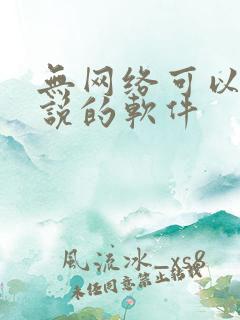 無网络可以
説的軟件
風流冰_xs8
未任同意禁止转载